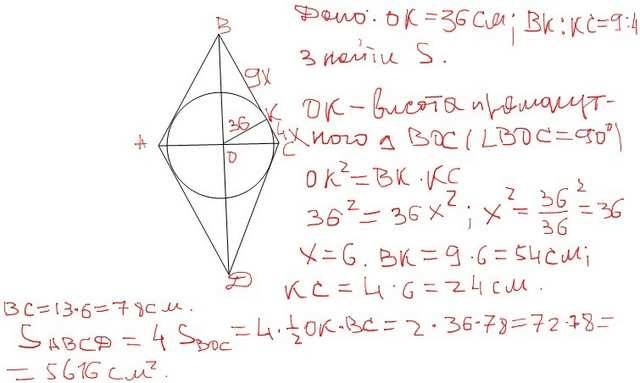 B
Дано: OK=36см; BK:KC=9:4
Знайти S.
9x
OK-висота прямокут-
ного Δ BOC(∠BOC=90⁰)
36
K
4x
A
O
C
OK²=BK·KC
36²=36x²; x²=36²/36=36
x=6. BK=9·6=54см;
D
KC=4·6=24см.
BC=13·6=78см.
S ABCD=4 S BOC=4·½OK·BC=2·36·78=72·78=
=5616см².